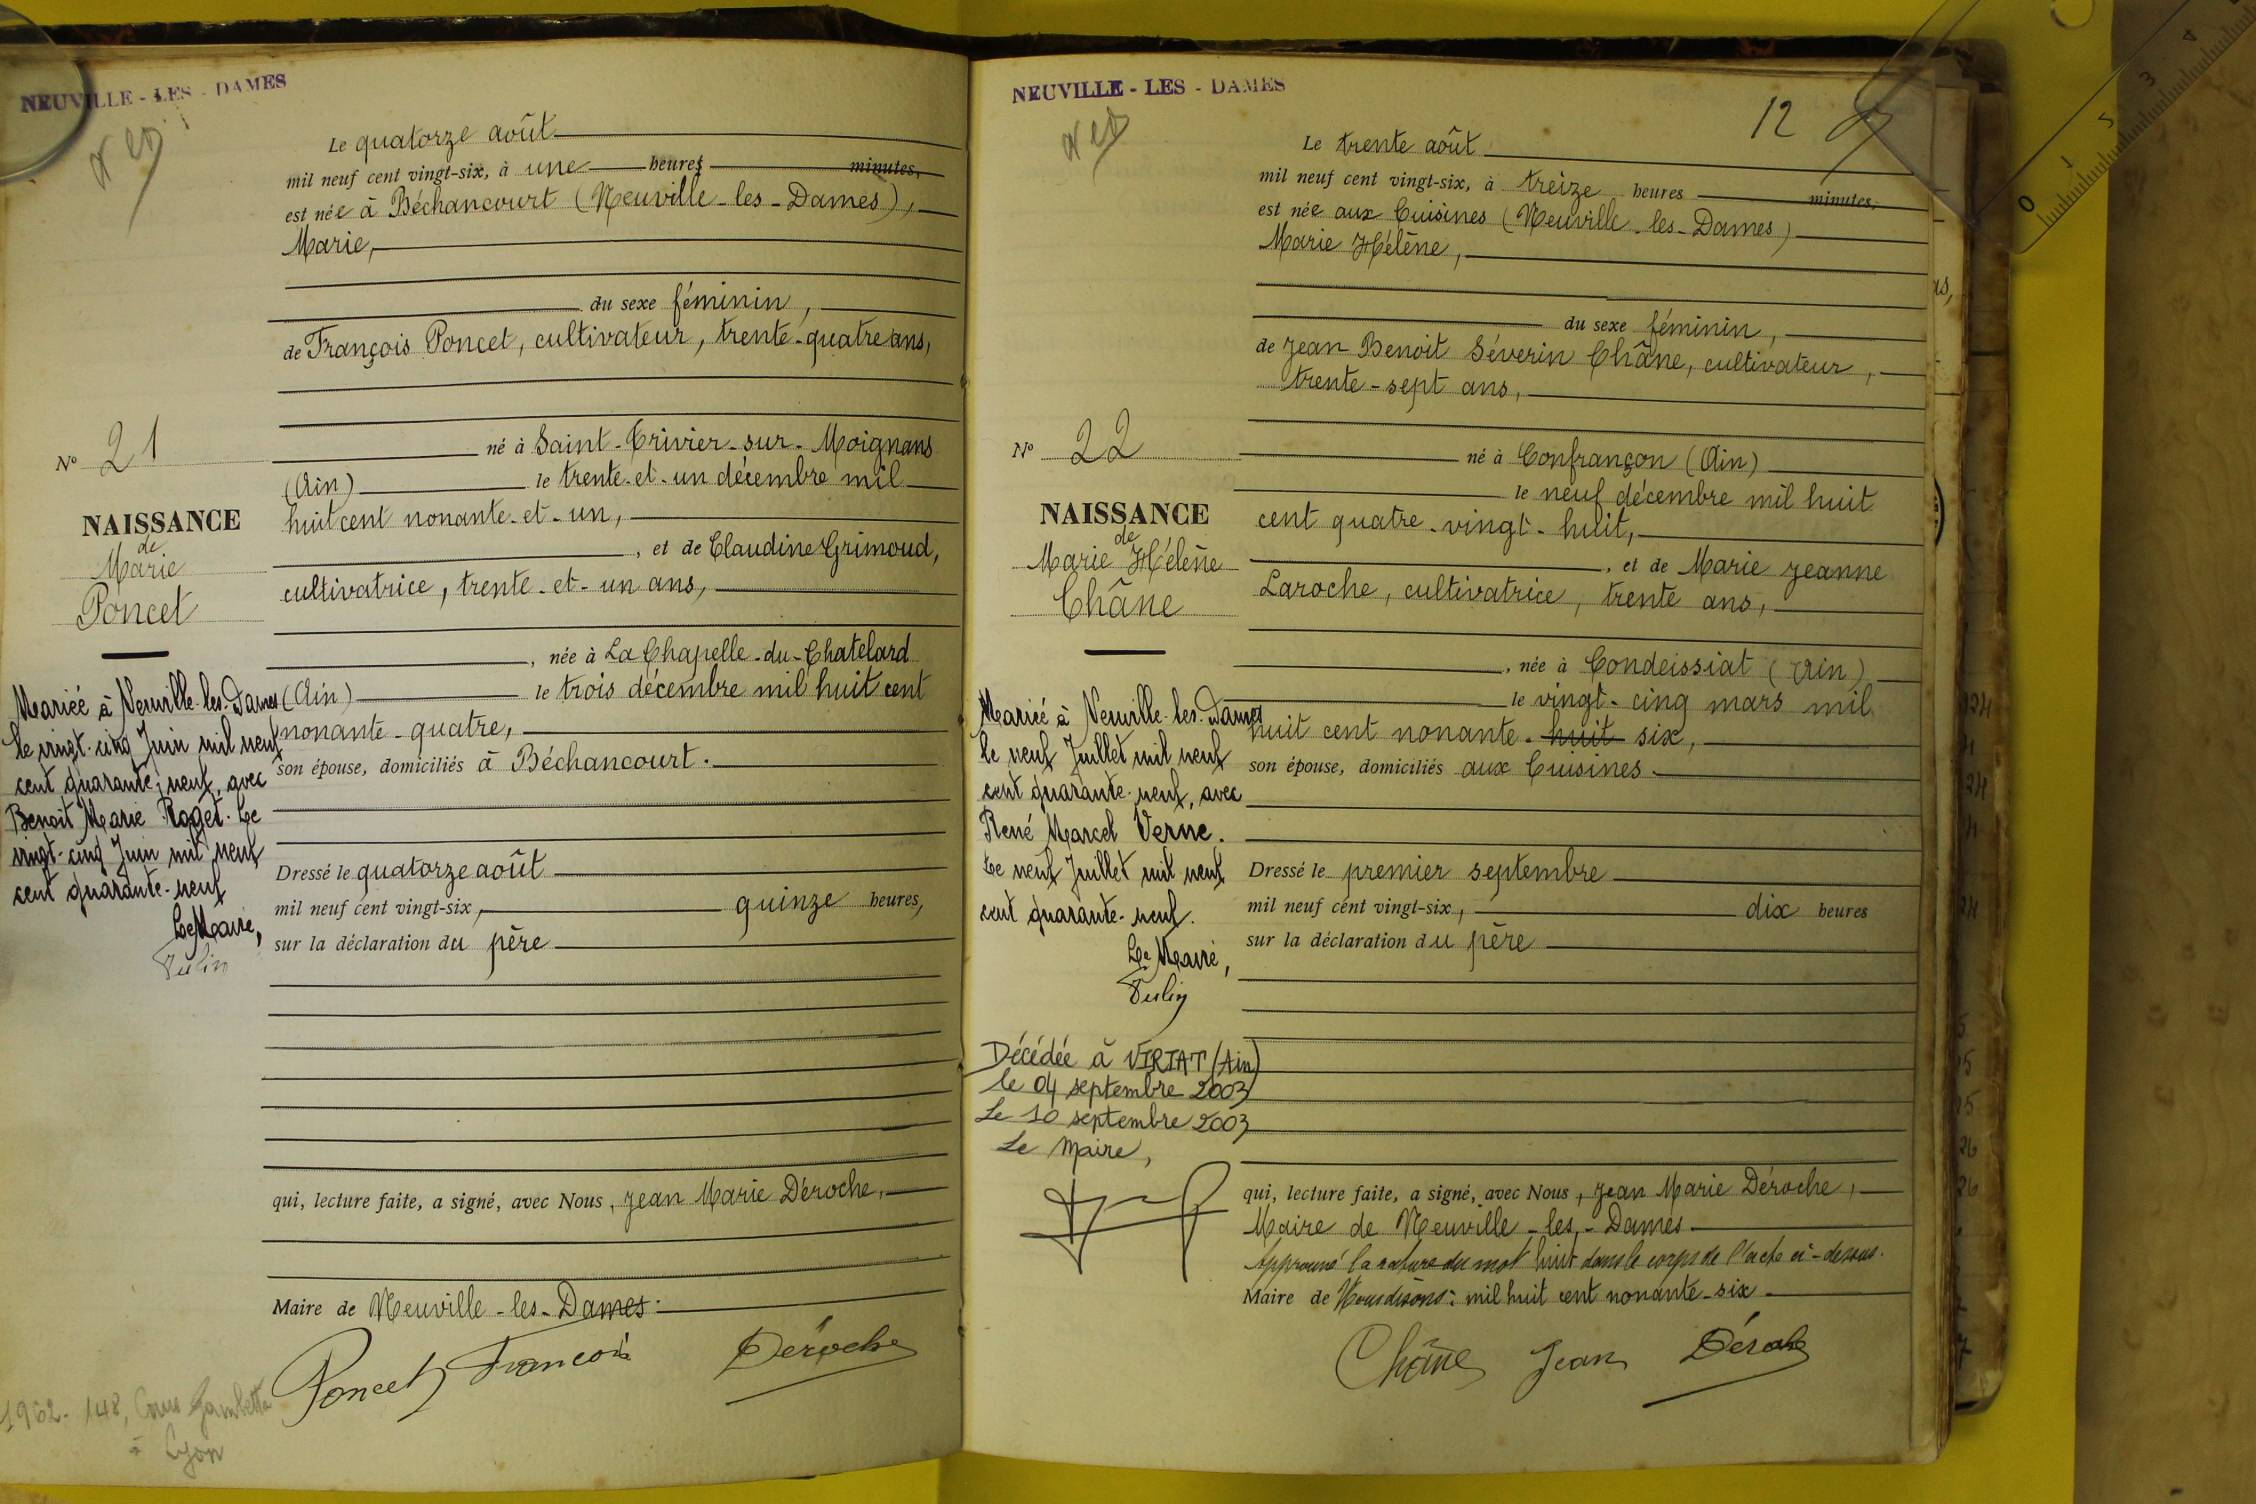 NEUVILLE - LES - DAMES
Le quatorze août
mil neuf cent vingt-six, à une heures minutes,
est née à Béchancourt (Neuville-les-Dames),
Marie,
du sexe féminin,
de François Poncet, cultivateur, trente-quatre ans,
né à Saint-Trivier-sur-Moignans
(Ain) le trente-et-un décembre mil
huit cent nonante-et-un,
, et de Claudine Grimoud,
cultivatrice, trente-et-un ans,
, née à La Chapelle-du-Chatelard
(Ain) le trois décembre mil huit cent
nonante-quatre,
son épouse, domiciliés à Béchancourt.
Dressé le quatorze août
mil neuf cent vingt-six, quinze heures,
sur la déclaration du père
qui, lecture faite, a signé, avec Nous, Jean Marie Déroche,
Maire de Neuville-les-Dames.
Poncet François Déroche
No 21
NAISSANCE
de
Marie
Poncet
Mariée à Neuville-les-Dames
le vingt-cinq Juin mil neuf
cent quarante-neuf, avec
Benoit Marie Roget. Le
vingt-cinq Juin mil neuf
cent quarante-neuf
Le Maire,
1962. 148, Cours Gambetta
à Lyon
NEUVILLE - LES - DAMES
12
Le trente août
mil neuf cent vingt-six, à treize heures minutes,
est née aux Cuisines (Neuville-les-Dames)
Marie Hélène,
du sexe féminin,
de Jean Benoit Séverin Châne, cultivateur,
trente-sept ans,
né à Confrançon (Ain)
le neuf décembre mil huit
cent quatre-vingt-huit,
, et de Marie Jeanne
Laroche, cultivatrice, trente ans,
, née à Condeissiat (Ain)
le vingt-cinq mars mil
huit cent nonante-huit six,
son épouse, domiciliés aux Cuisines
Dressé le premier septembre
mil neuf cent vingt-six, dix heures
sur la déclaration du père
qui, lecture faite, a signé, avec Nous, Jean Marie Déroche,
Maire de Neuville-les-Dames
Approuvé la rature du mot huit dans le corps de l'acte ci-dessus.
Maire de Nous disons: mil huit cent nonante-six
Châne Jean Déroche
No 22
NAISSANCE
de
Marie Hélène
Châne
Mariée à Neuville-les-Dames
le neuf Juillet mil neuf
cent quarante-neuf, avec
René Marcel Verne.
Le neuf Juillet mil neuf
cent quarante-neuf.
Le Maire,
Décédée à VIRIAT (Ain)
le 04 septembre 2003
Le 10 septembre 2003
Le Maire,
0 1 2 3 4